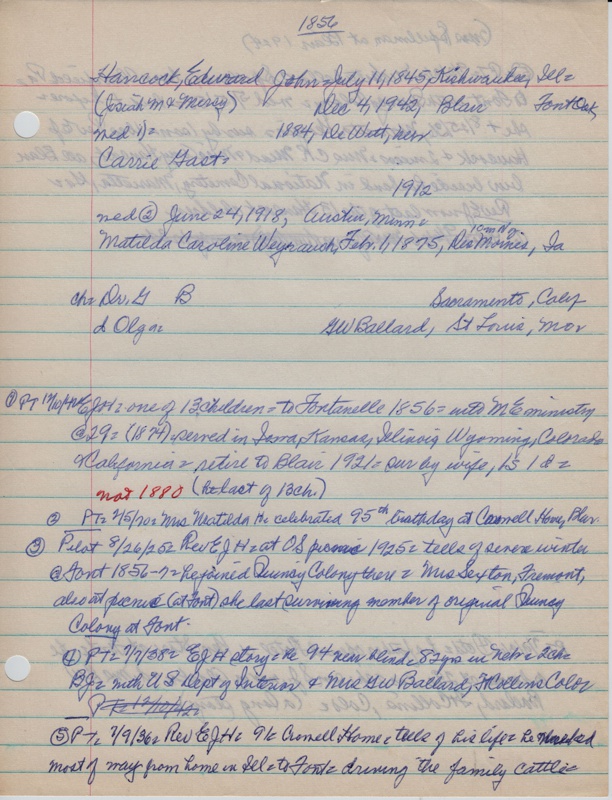 1856
Hancock, Edward John = July 11, 1845, Kishwaukee, Ill =
(Josiah M & Mercy) Dec 4, 1942, Blair Font Oak,
med 1) = 1884, DeWitt, nebr
Carrie Gast =
1912
med ② June 24, 1918, Austin, Minn =
Matilda Caroline Weyrauch, Feb. 1, 1875, Des Moines, Ia
ch = Dr. G B Sacramento, Calif
d Olga = GW Ballard, St Louis, Mo
① PT 12/10/42 EJH = one of 13 children = to Fontanelle 1856 = into ME ministry
@ 29 = (1874) served in Iowa, Kansas, Illinois Wyoming, Colorado
& California = retire to Blair 1921 = sur by wife, 1s 1d =
not 1880 (he last of 13 ch.)
② PT = 2/5/70 = Mrs Matilda H = celebrated 95th birthday at Crowell Home, Blair.
③ Pilot 8/26/25 = Rev EJH = at OS picnic 1925 = tells of severe winter
@ Font 1856-7 = he joined Quincy Colony there = Mrs Sexton, Fremont,
also at picnic (at Font) she last surviving member of original Quincy
Colony at Font.
④ PT = 7/7/38 = EJH story = he 94 near blind = 82 yrs in Neb = 2 ch =
BJ = with US Dept of Interior & Mrs GW Ballard, Ft Collins Color
PT = 12/10/42
⑤ PT = 7/9/36 = Rev EJH = 91 = Crowell Home = tells of his life = he
most of way from home in Ill = to Font = driving the family cattle =